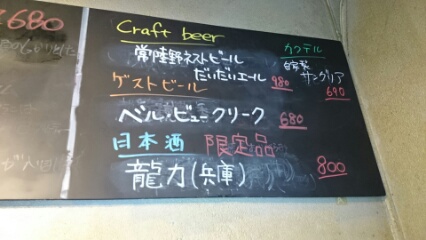 680
Craft beer
常陸野ネストビール
だいだいエール 980
ゲストビール
ベル・ビュークリーク 680
日本酒 限定品
龍力(兵庫) 800
カクテル
自家製
サングリア
690